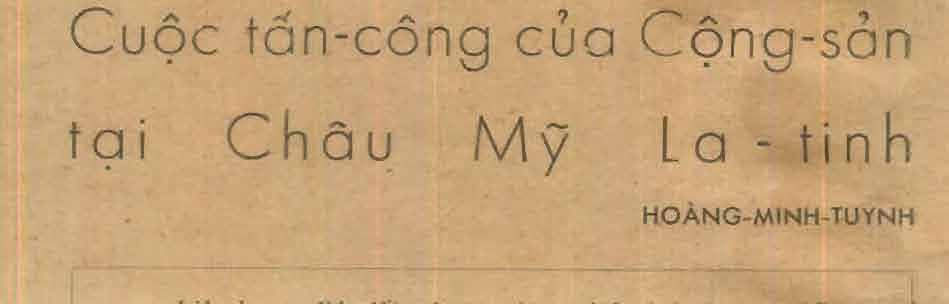 Cuộc tấn-công của Cộng-sản
tại Châu Mỹ La-tinh
HOÀNG-MINH-TUYNH